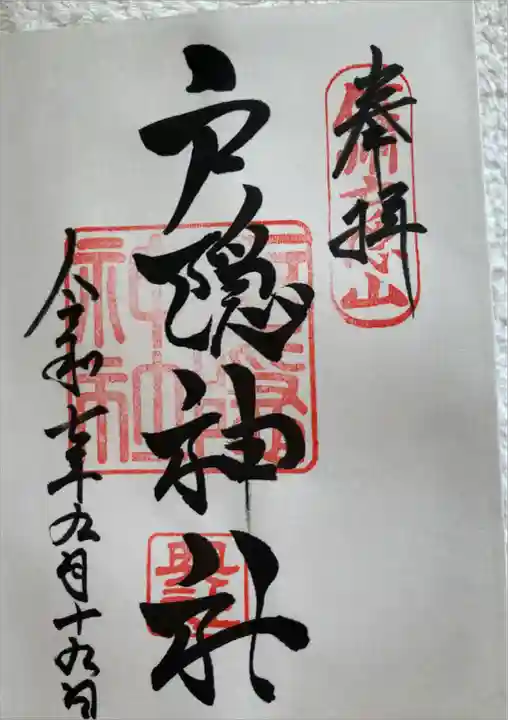 奉拝
戸隠神社
令和七年九月十九日